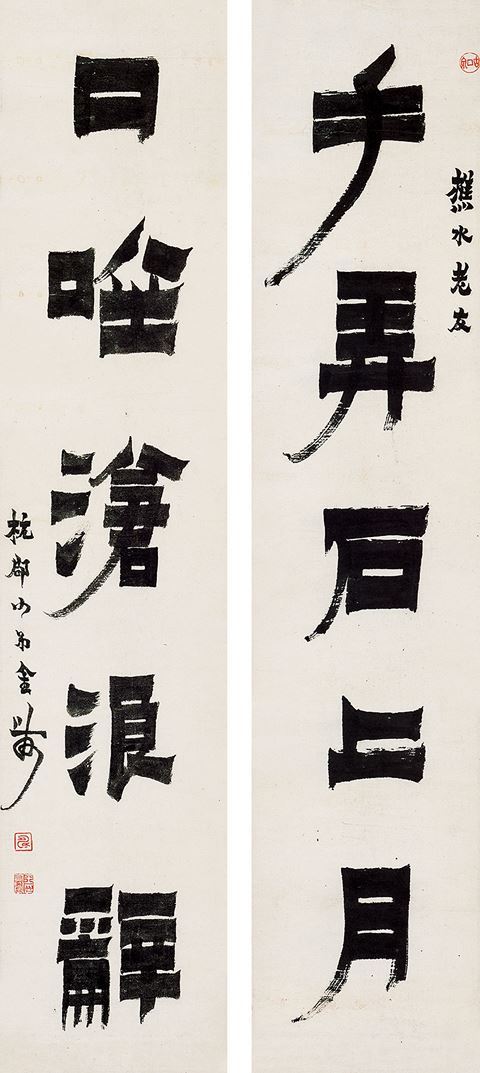 樵水老友
手弄石上月
口唫滄浪辭
杭郡小弟金農